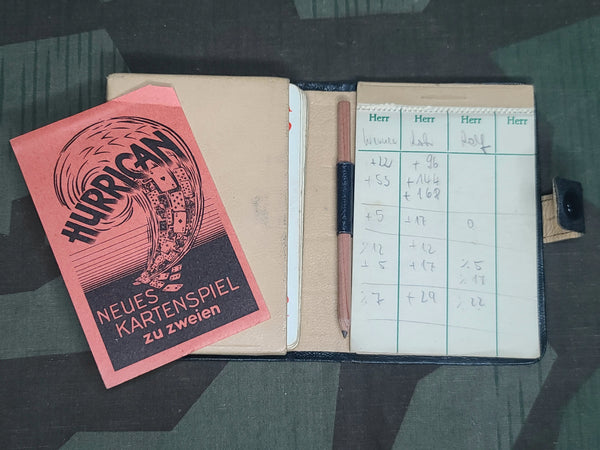 HURRICAN
NEUES
KARTENSPIEL
zu zweien
Herr Herr Herr Herr
Rolf
+22 +96
+55 +144
+168
+5 +17 0
% 12 +12
+5 +17 % 5
% 17
% 7 +29 % 22